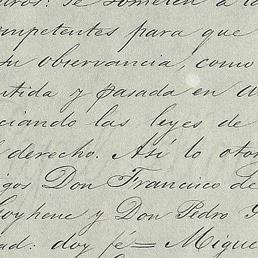 uros: se someten a la
ompetentes para que
su observancia, como
ntida y pasada en a
ciando las leyes de
l derecho. Así lo otor
igos Don Francisco de
Goyhene y Don Pedro
ad: doy fé = Migue